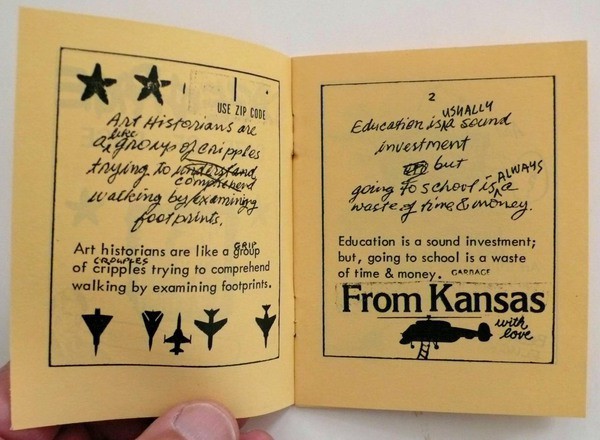 USE ZIP CODE
Art Historians are
like
a groups of cripples
trying to understand
comprehend
walking by examining
footprints.
Art historians are like a group
GRIP
of cripples trying to comprehend
CROUPLES
walking by examining footprints.
2
USUALLY
Education is a sound
investment
but
ALWAYS
going to school is a
waste of time & money.
Education is a sound investment;
but, going to school is a waste
of time & money. GARBAGE
From Kansas
with
love